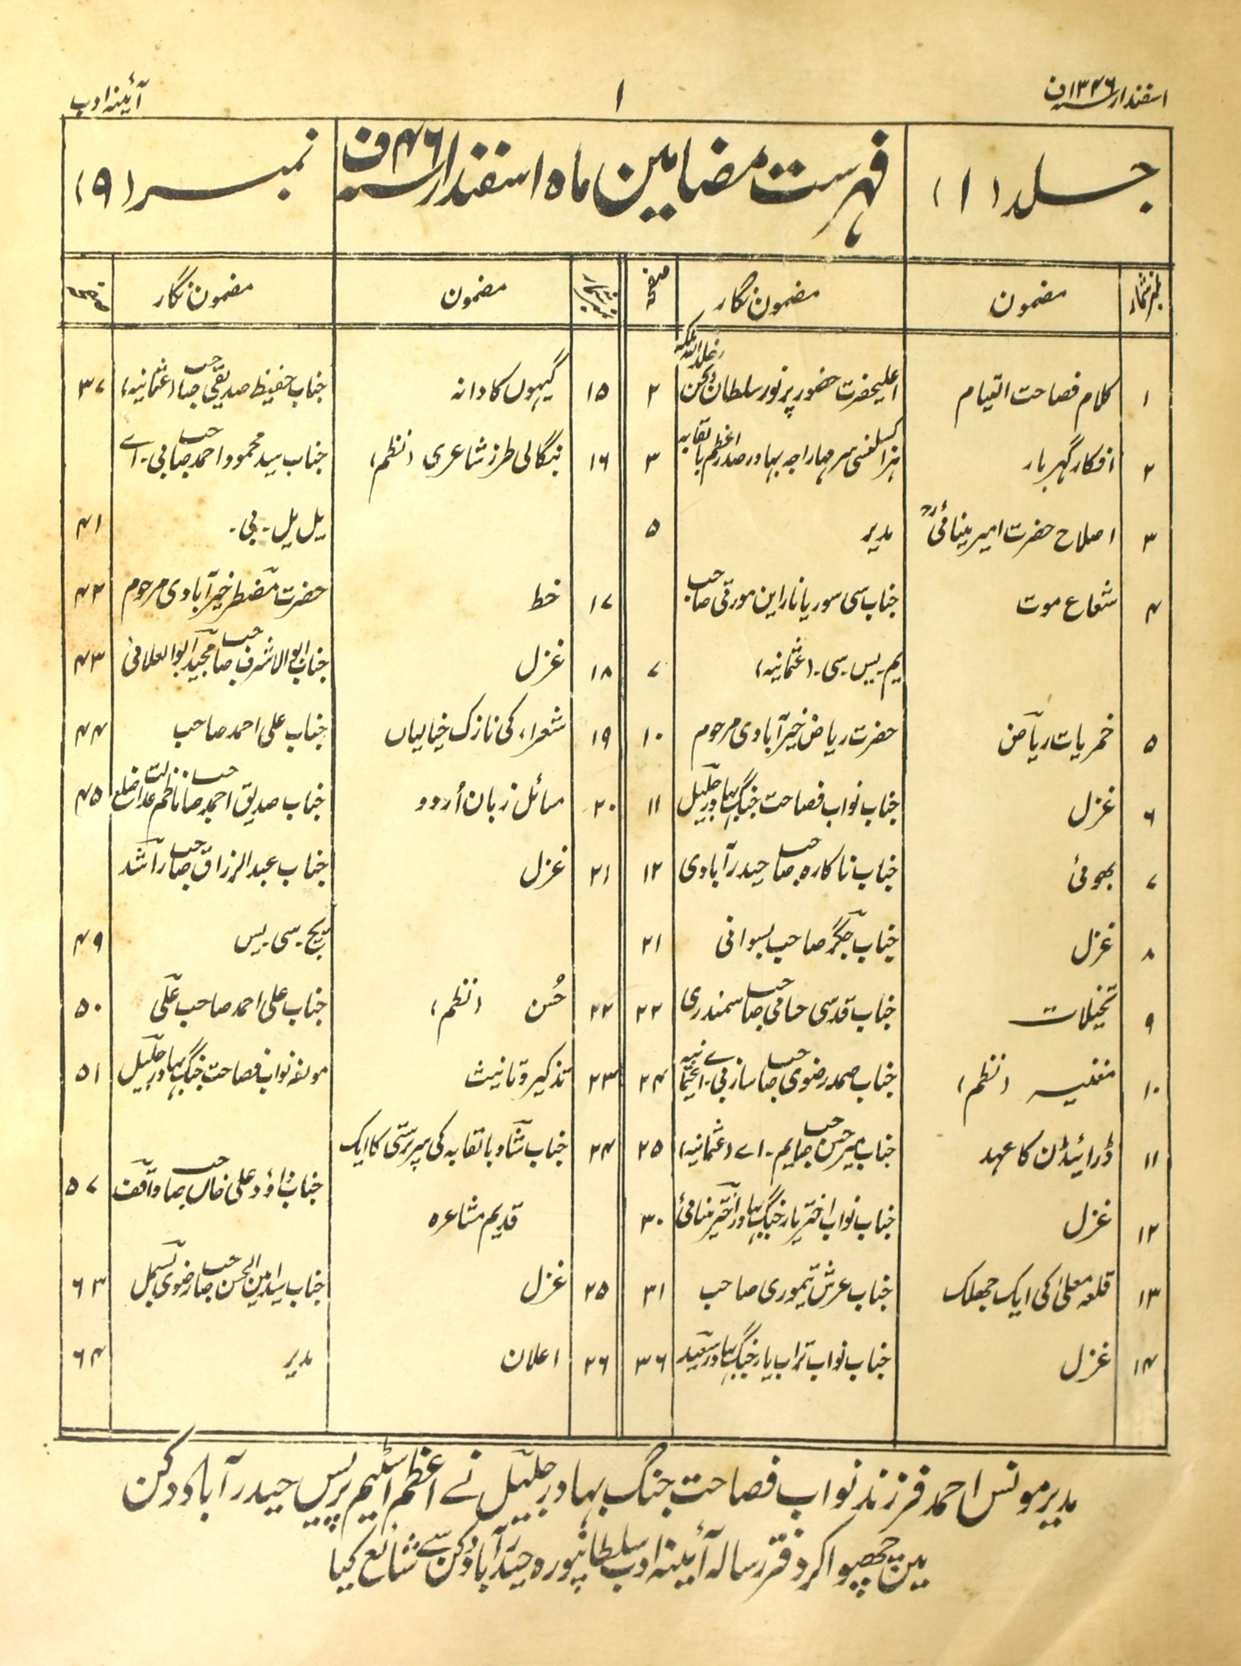 اسفندار ۱۳۴۶ف
۱
آئینہ ادب
جلد (۱)
فہرست مضامین ماہ اسفندار ۴۶ف
نمبر (۹)
نمبر شمار مضمون مضمون نگار صفحہ
۱ کلام فصاحت التیام اعلیحضرت حضور پرنور سلطان دکن خلد اللہ ملکہ ۲
۲ افکار گہربار ہزاکسلنسی سر مہاراجہ بہادر صدر اعظم بالقابہ ۳
۳ اصلاح حضرت امیر مینائیؒ مدیر ۵
۴ شعاع موت جناب سی سوریا نارائن مورتی صاحب
یم۔یس۔سی۔(عثمانیہ) ۷
۵ خمریات ریاض حضرت ریاض خیرآبادی مرحوم ۱۰
۶ غزل جناب نواب فصاحت جنگ بہادر جلیل ۱۱
۷ بھوئی جناب ناکارہ صاحب حیدرآبادی ۱۲
۸ غزل جناب جگر صاحب بسوانی ۲۱
۹ تخیلات جناب قدسی حامی صاحب سمندری ۲۲
۱۰ مغنیہ (نظم) جناب صمد رضوی صاحب ساز ۲۴
۱۱ ڈرائیڈن کا عہد جناب میر حسن صاحب ایم۔اے (عثمانیہ) ۲۵
۱۲ غزل جناب نواب اختر یار جنگ بہادر اختر مینائی ۳۰
۱۳ قلعہ معلیٰ کی ایک جھلک جناب عرش تیموری صاحب ۳۱
۱۴ غزل جناب نواب تراب یار جنگ بہادر سعید ۳۶
نمبر شمار مضمون مضمون نگار صفحہ
۱۵ گیہوں کا دانہ جناب حفیظ صدیقی صاحب (عثمانیہ) ۳۷
۱۶ بنگالی طرز شاعری (نظم) جناب سید محمود احمد صاحب بی۔اے
یل یل۔بی۔ ۴۱
۱۷ خط حضرت مضطر خیرآبادی مرحوم ۴۲
۱۸ غزل جناب ابوالاشرف صاحب مجید ابوالعلائی ۴۳
۱۹ شعراء کی نازک خیالیاں جناب علی احمد صاحب ۴۴
۲۰ مسائل زبان اُردو جناب صدیق احمد صاحب ناظم عدالت ضلع ۴۵
۲۱ غزل جناب عبدالرزاق صاحب راشد
یچ۔سی۔یس ۴۹
۲۲ حُسن (نظم) جناب علی احمد صاحب علی ۵۰
۲۳ تذکیر و تانیث مولفہ نواب فصاحت جنگ بہادر جلیل ۵۱
۲۴ جناب شاد بالقابہ کی سرپرستی کا ایک
قدیم مشاعرہ جناب داؤد علی خاں صاحب واقف ۵۷
۲۵ غزل جناب سید امین الحسن صاحب رضوی بسمل ۶۳
۲۶ اعلان مدیر ۶۴
مدیر مونس احمد فرزند نواب فصاحت جنگ بہادر جلیل نے اعظم اسٹیم پریس حیدرآباد دکن
میں چھپوا کر دفتر رسالہ آئینہ ادب سلطانپورہ حیدرآباد دکن سے شائع کیا